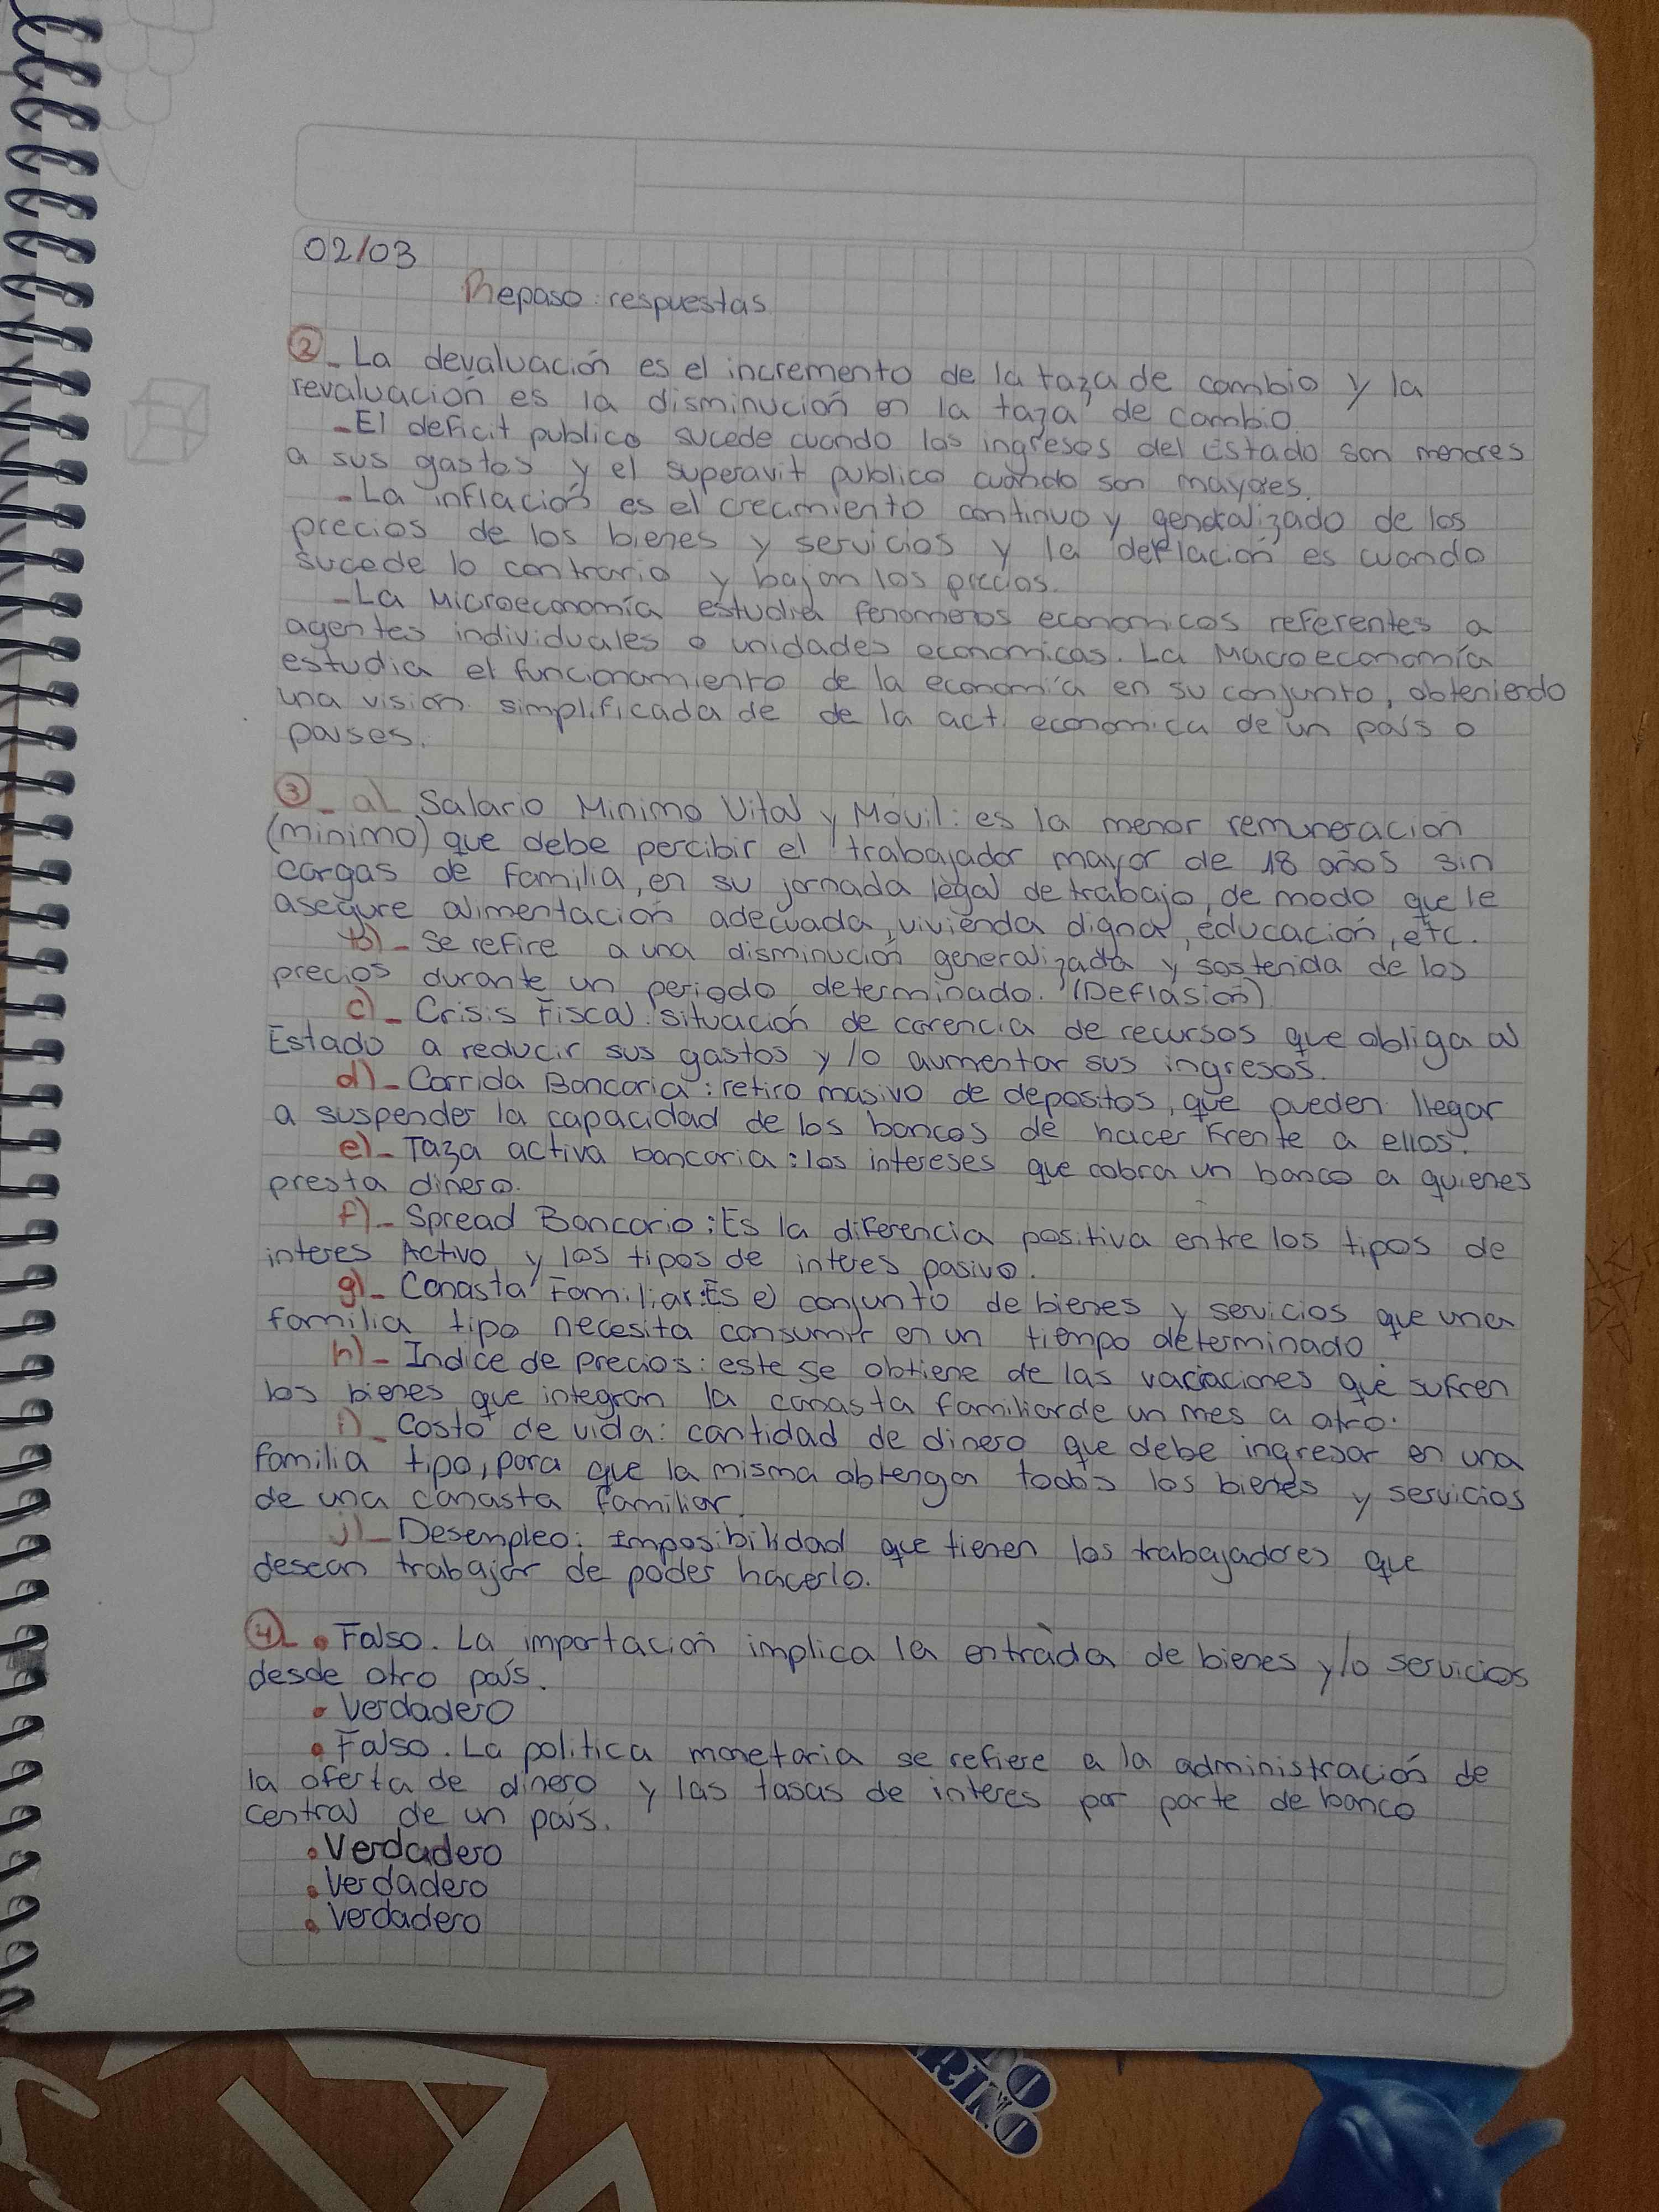 02/03
Repaso: respuestas
②- La devaluación es el incremento de la taza de cambio y la
revaluación es la disminución en la taza de cambio.
- El deficit publico sucede cuando los ingresos del Estado son menores
a sus gastos y el superavit publico cuando son mayores.
- La inflación es el crecimiento continuo y generalizado de los
precios de los bienes y servicios y la deflación es cuando
sucede lo contrario y bajan los precios.
- La Microeconomía estudia fenomenos economicos referentes a
agentes individuales o unidades economicas. La Macroeconomía
estudia el funcionamiento de la economía en su conjunto, obteniendo
una visión simplificada de de la act. economica de un país o
países.
③- a)- Salario Minimo Vital y Móvil: es la menor remuneración
(minimo) que debe percibir el trabajador mayor de 18 años sin
cargas de familia, en su jornada legal de trabajo, de modo que le
asegure alimentación adecuada, vivienda digna, educación, etc.
b)- Se refire a una disminución generalizada y sostenida de los
precios durante un periodo determinado. (Deflasión)
c)- Crisis Fiscal: situación de carencia de recursos que obliga al
Estado a reducir sus gastos y/o aumentar sus ingresos.
d)- Corrida Bancaria: retiro masivo de depositos, que pueden llegar
a suspender la capacidad de los bancos de hacer frente a ellos.
e)- Taza activa bancaria: los intereses que cobra un banco a quienes
presta dinero.
f)- Spread Bancario: Es la diferencia positiva entre los tipos de
interes Activo y los tipos de interes pasivo.
g)- Canasta Familiar: Es el conjunto de bienes y servicios que una
familia tipo necesita consumir en un tiempo determinado.
h)- Indice de precios: este se obtiene de las variaciones que sufren
los bienes que integran la canasta familiar de un mes a otro.
i)- Costo de vida: cantidad de dinero que debe ingresar en una
familia tipo, para que la misma obtenga todos los bienes y servicios
de una canasta familiar.
j)- Desempleo: Imposibilidad que tienen los trabajadores que
desean trabajar de poder hacerlo.
④- • Falso. La importación implica la entrada de bienes y/o servicios
desde otro país.
• Verdadero
• Falso. La politica monetaria se refiere a la administración de
la oferta de dinero y las tasas de interes por parte de banco
central de un país.
• Verdadero
• Verdadero
• Verdadero